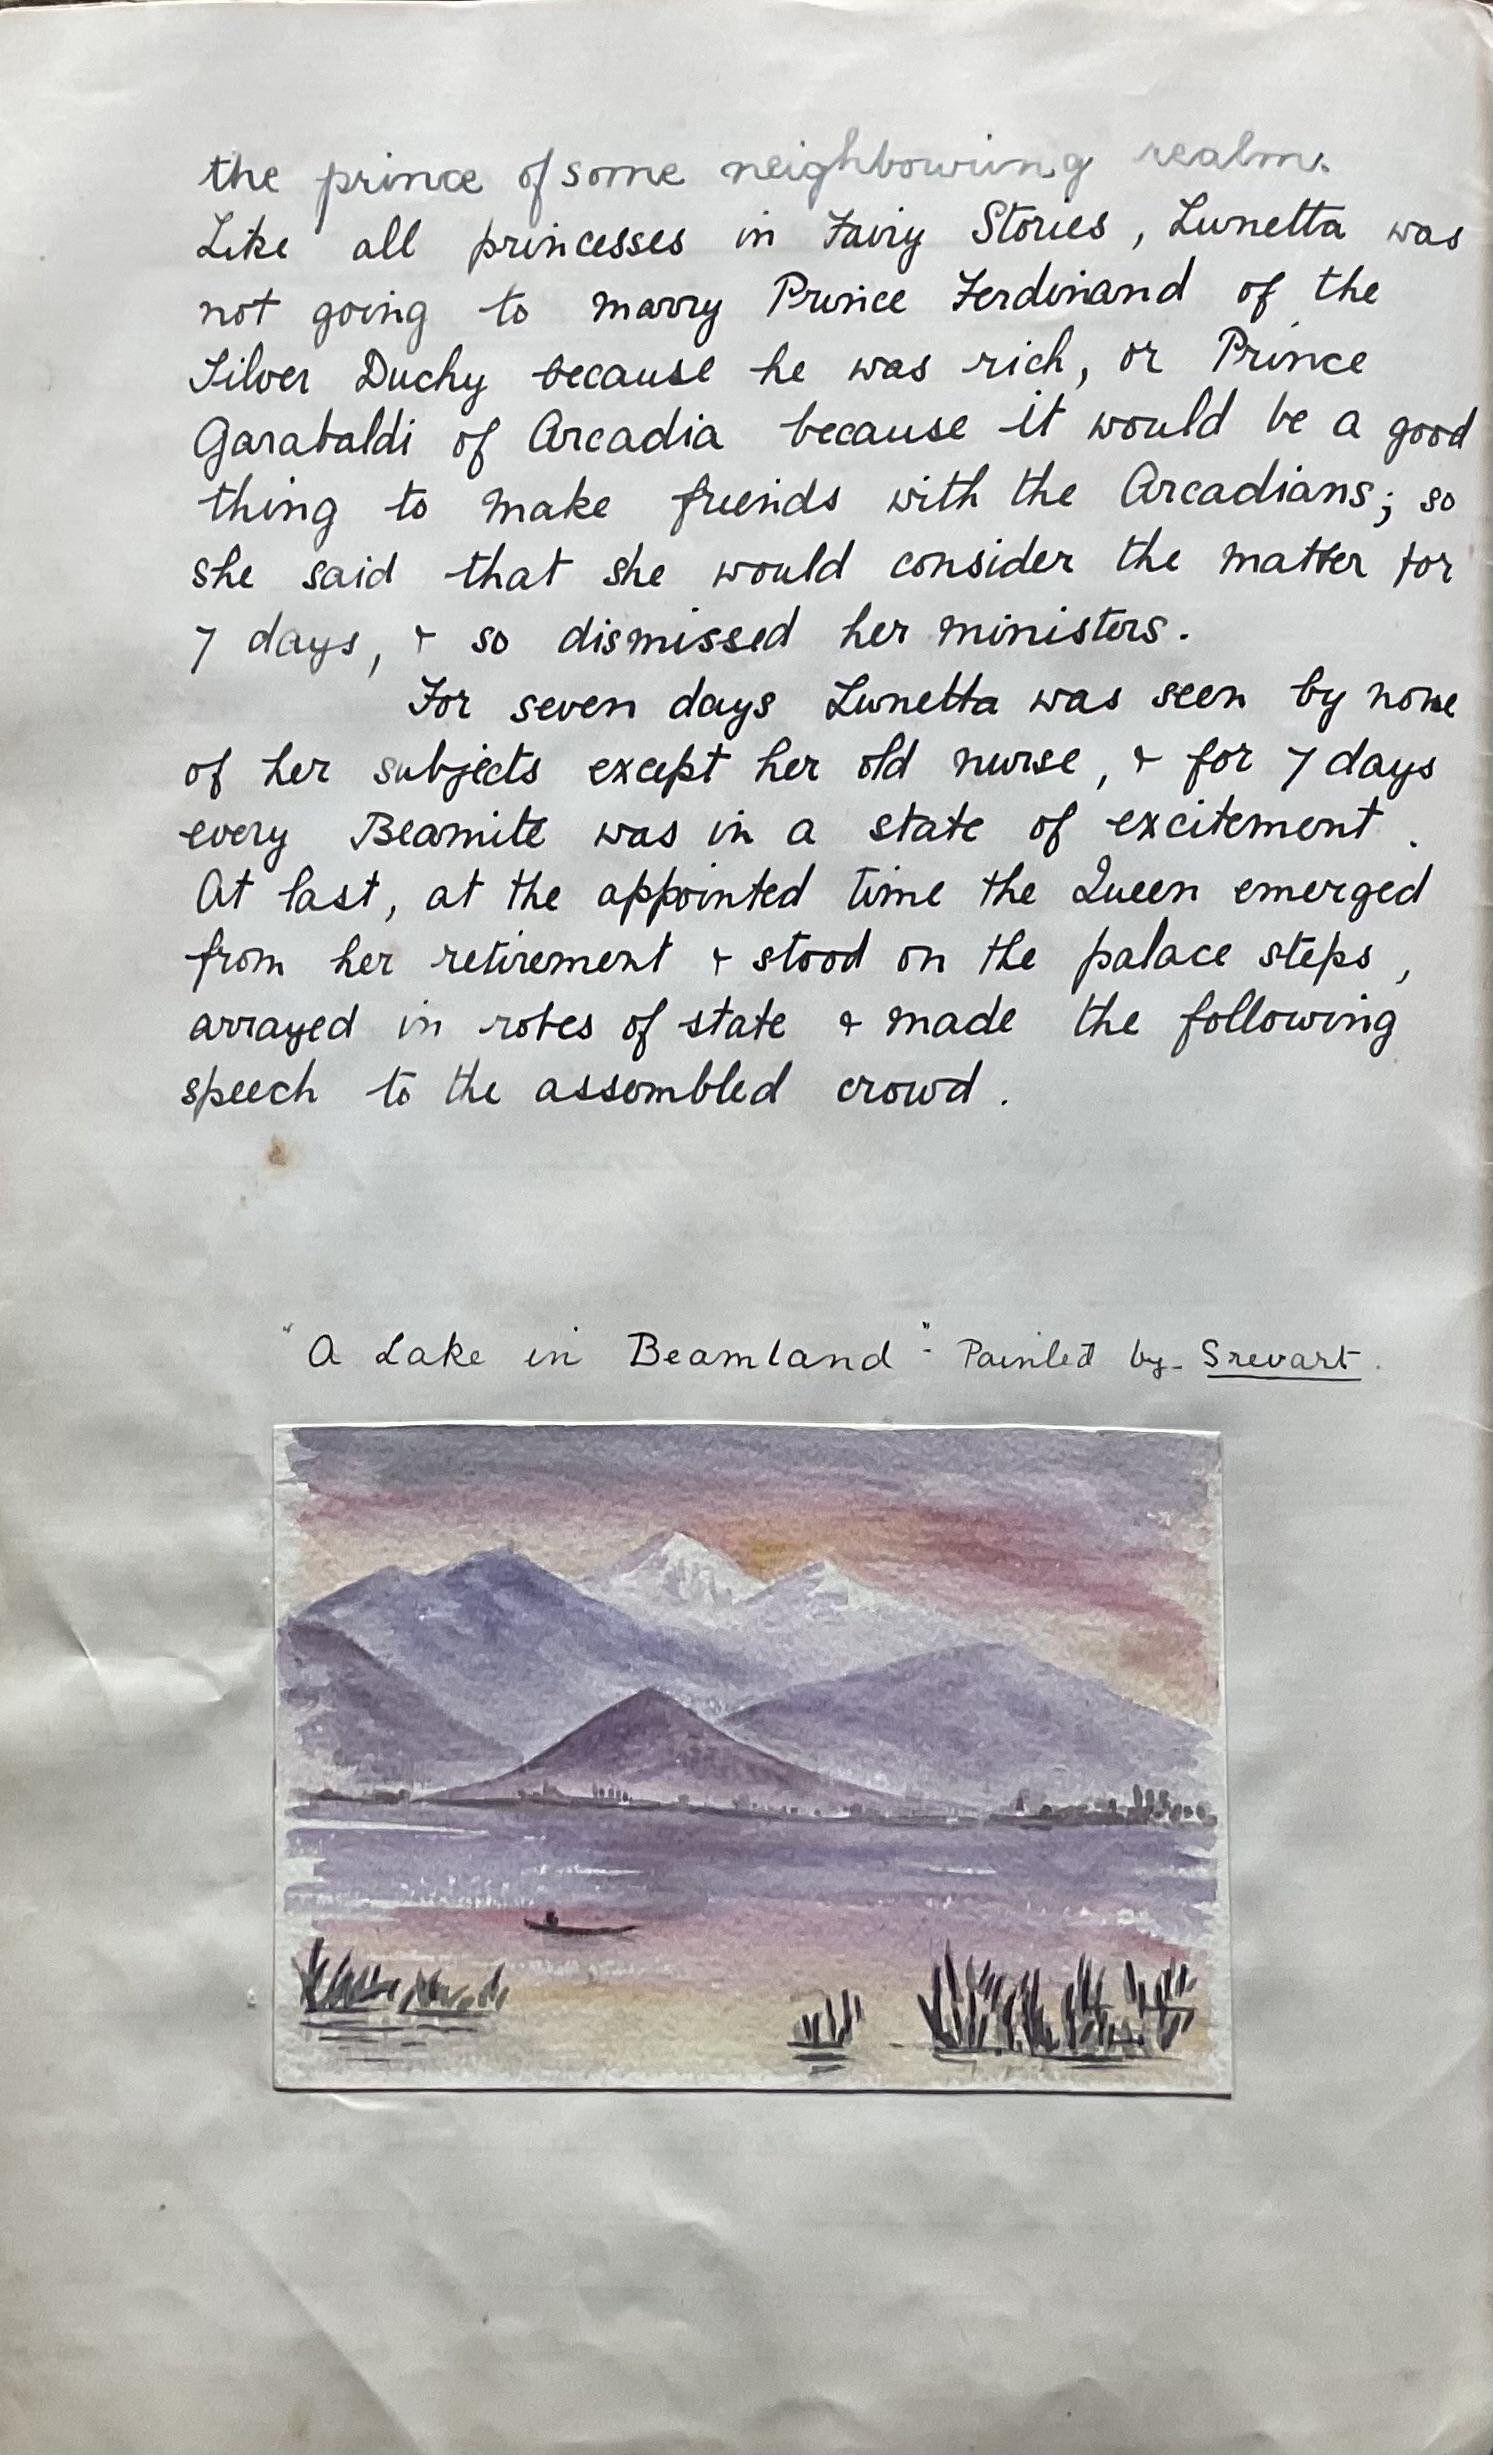 the prince of some neighbouring realm.
Like all princesses in Fairy Stories, Lunetta was
not going to marry Prince Ferdinand of the
Silver Duchy because he was rich, or Prince
Garabaldi of Arcadia because it would be a good
thing to make friends with the Arcadians; so
she said that she would consider the matter for
7 days, & so dismissed her ministers.
For seven days Lunetta was seen by none
of her subjects except her old nurse, & for 7 days
every Beamite was in a state of excitement.
At last, at the appointed time the Queen emerged
from her retirement & stood on the palace steps,
arrayed in robes of state & made the following
speech to the assembled crowd.
"A Lake in Beamland" - Painted by - Srevart.